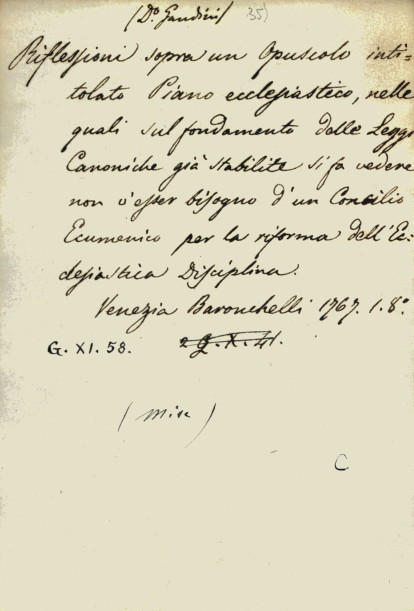 (Do. Gandini) 35)
Riflessioni sopra un Opuscolo inti=
tolato Piano ecclesiastico, nelle
quali sul fondamento delle Leggi
Canoniche già stabilite si fa vedere
non v'esser bisogno d'un Concilio
Ecumenico per la riforma dell'Ec-
clesiastica Disciplina.
Venezia Baronchelli 1767. 1. 8.o
G. XI. 58.
(Misc)
C